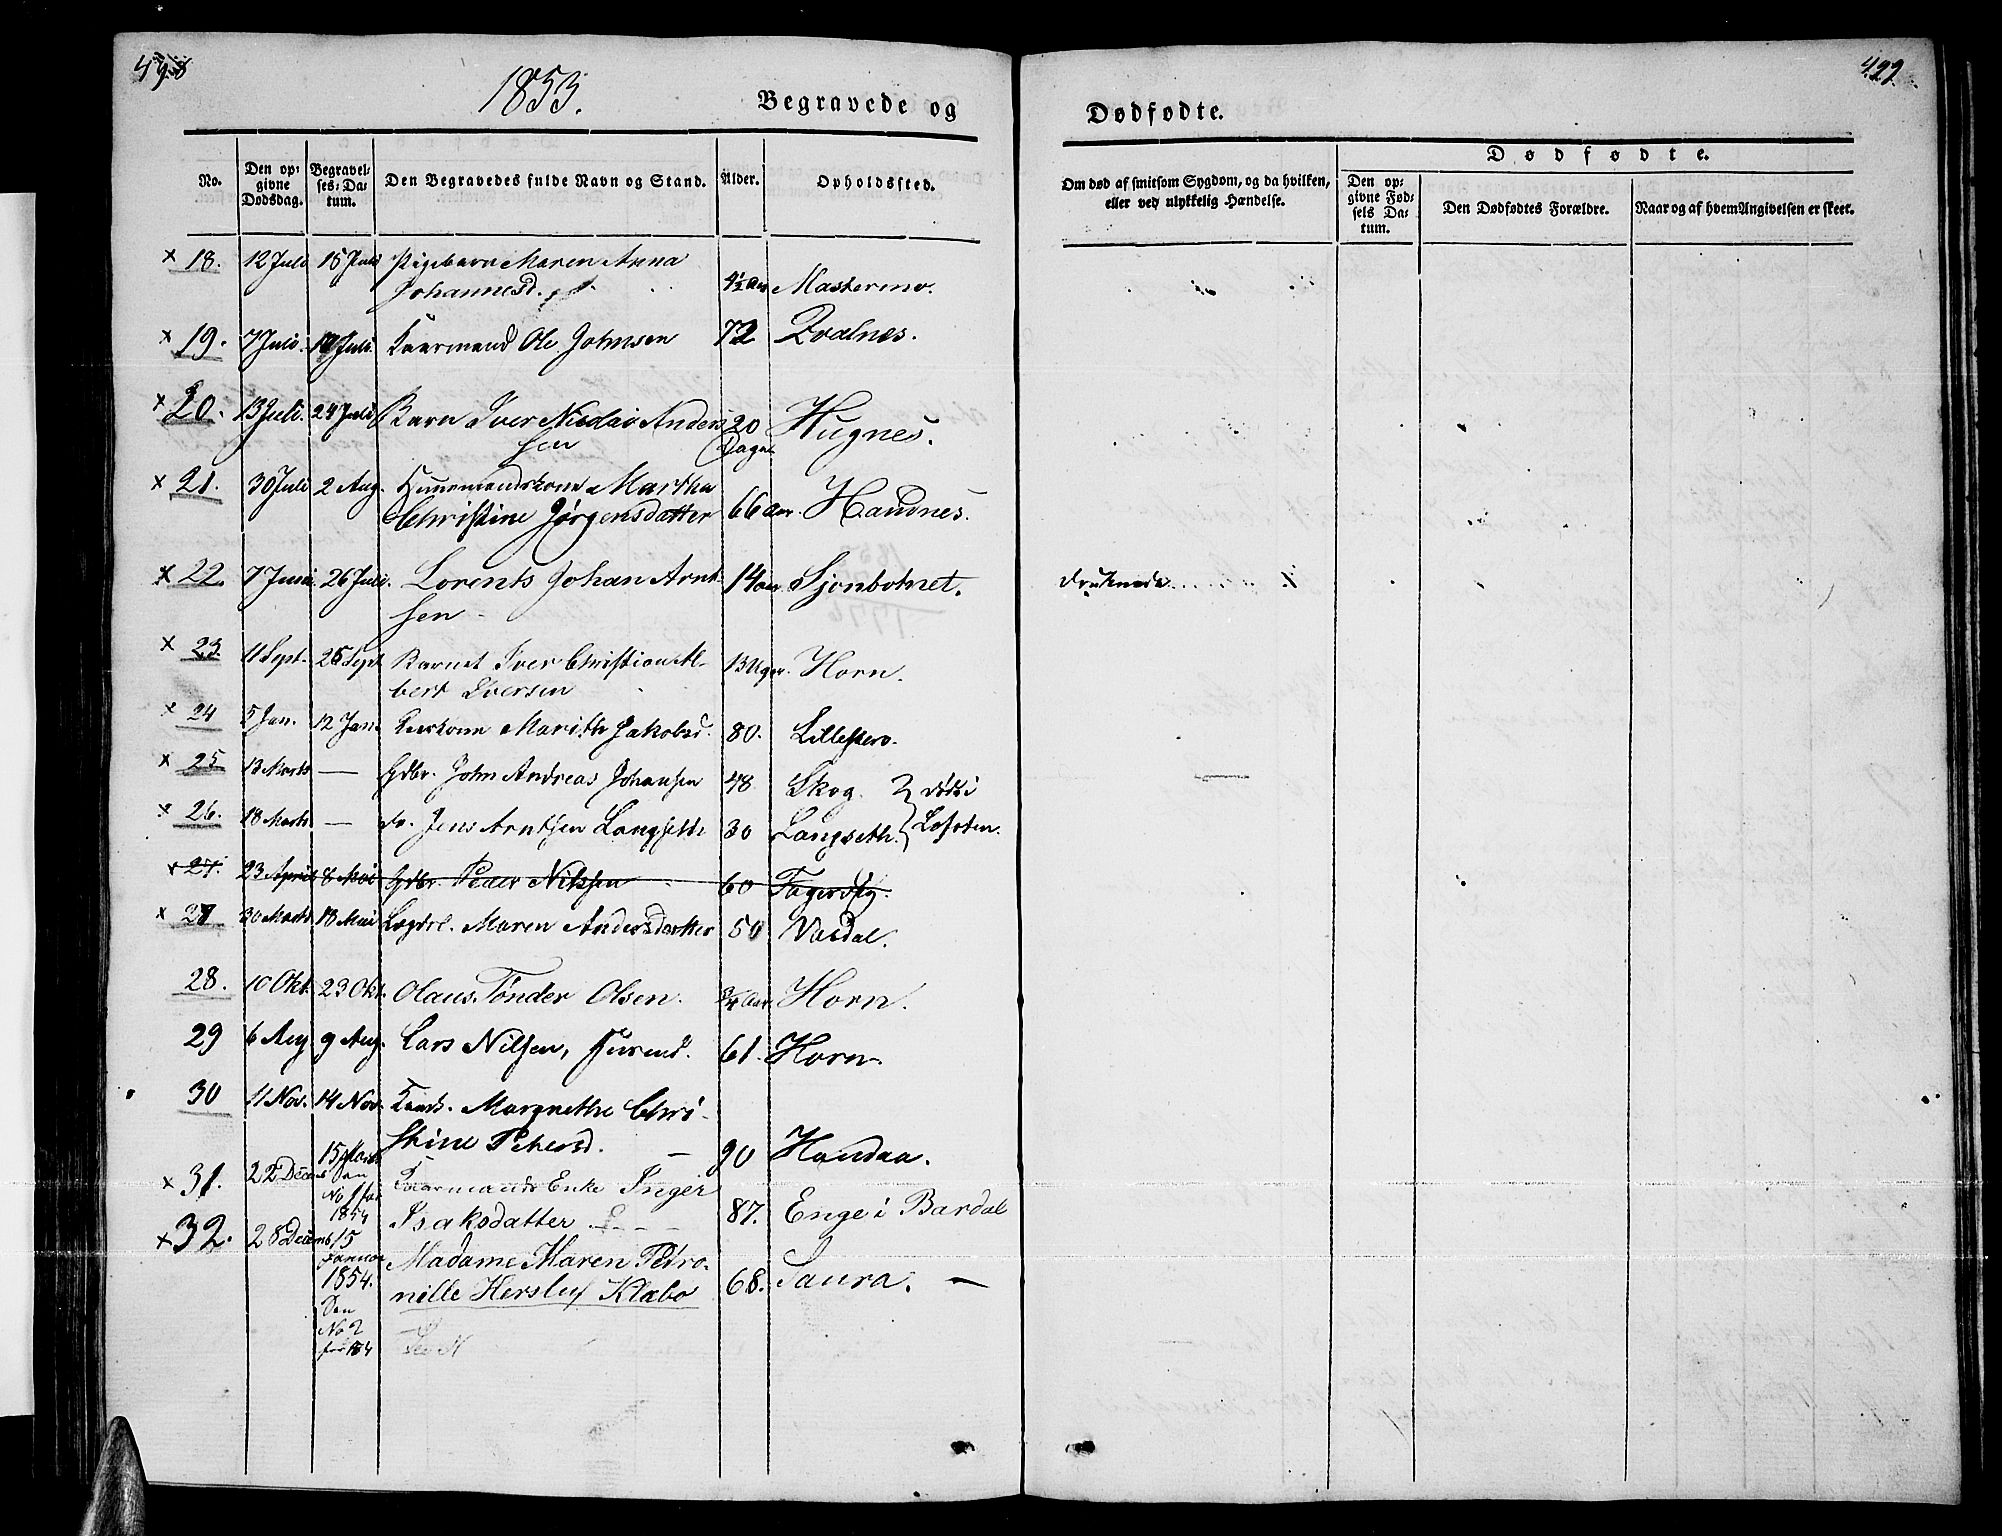 1853.
Begravede og
Dødfødte.
422
No.
Den op-
givne
Dødsdag.
Begravel-
ses-Da-
tum.
Den Begravedes fulde Navn og Stand.
Alder.
Opholdssted.
Om død af smitsom Sygdom, og da hvilken,
eller ved ulykkelig Hændelse.
Dødfødte.
Den op-
givne Fød-
sels Da-
tum.
Den Dødfødtes Forældre.
Naar og af hvem Angivelsen er skeet.
× 18. 12 Juli 15 Juli Pigebarn Maren Anna
Johannesd. 4½ Aar
× 19. 7 Juli Kaarmand Ole Johnsen 72
× 20. 13 Juli. 24 Juli Barn Iver Nicolai Ander- 20
sen Dage Hugnes.
× 21. 30 Juli 2 Aug. Huusmandskone Martha
Christine Jørgensdatter 66 Aar. Handnes.
× 22. 7 Juni 26 Juli. Lorents Johan Arnt- 14 aar Sjonbotnet. druknede
sen
× 23. 11 Sept. 25 Sept Barnet Iver Christian Al- 13 Uger. Horn.
bert Iversen
× 24 5 Jan. 12 Jan. Marith Jakobsd. 80.
× 25 13 Marts — Gdbr. John Andreas Johansen 48 Skog. døde i
× 26. 18 Marts — Jens Arntsen Langseth 30 Langseth. Lofoten.
× 27. 23 April 8 Mai Gdbr. Peder Nilssen 60
× 27 30 Marts 18 Mai Lægdsl. Maren Andersdatter 50
28. 10 Okt. 23 Okt. Olaus Tønder Olsen. ¾ Aar. Horn.
29 6 Aug 9 Aug. Lars Nilsen, 61. Horn.
30 11 Nov. 14 Nov. Margrethe Chri-
stine Petersd. — 90 Handaa.
× 31. 22 Decemb 15 Marts Kaarmands Enke Inger
No 1 for
1854 Isaksdatter 87. Enge i Bardal
× 32. 28 Decemb 15
Januar
1854. Madame Maren Petro-
nille Herslef Klæbo 68. Saura. —
No 2
for 1854